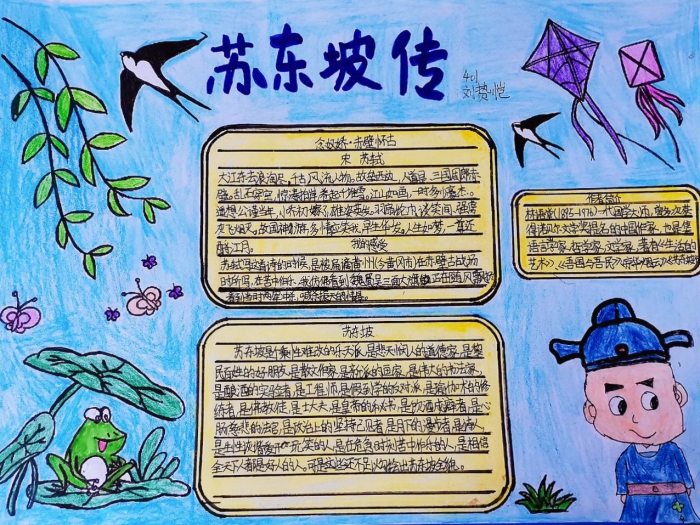 苏东坡传
401
刘赞恺
念奴娇·赤壁怀古
宋 苏轼
大江东去,浪淘尽,千古风流人物。故垒西边,人道是,三国周郎赤
壁。乱石穿空,惊涛拍岸,卷起千堆雪。江山如画,一时多少豪杰。
遥想公瑾当年,小乔初嫁了,雄姿英发。羽扇纶巾,谈笑间,樯橹
灰飞烟灭。故国神游,多情应笑我,早生华发。人生如梦,一尊还
酹江月。 我的感受
苏轼写这首词的时候,是被贬黄州(今黄冈市)在赤壁古战场
时所写,在苦中作乐。我仿佛看到
作者简介
林语堂(1895-1976)一代国学大师,曾多次获
得诺贝尔文学奖提名的中国作家,也是著
语言学家、哲学家、文学家。著有《生活的
艺术》、《吾国与吾民》《京华烟云》
苏东坡
苏东坡是个秉性难改的乐天派,是悲天悯人的道德家,是黎
民百姓的好朋友,是散文作家,是新派的画家,是伟大的书法家,
是酿酒的实验者,是工程师,是假道学的反对派,是瑜伽术的修
练者,是佛教徒,是士大夫,是皇帝的秘书,是饮酒成癖者,是心
肠慈悲的法官,是政治上的坚持己见者,是月下的漫步者,是诗人,
是生性诙谐爱开玩笑的人,是在危急时刻苦中作乐的人,是相信
全天下人都是好人的人。可是这些还不足以勾绘出苏东坡全貌。